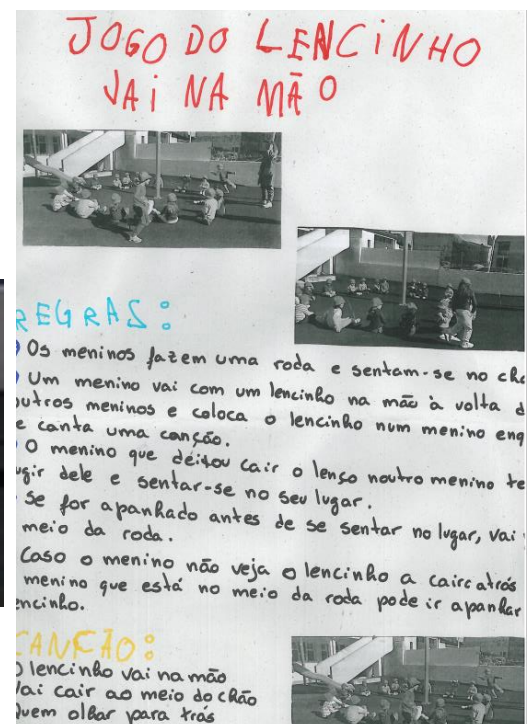 JOGO DO LENCINHO
VAI NA MÃO
REGRAS:
Os meninos fazem uma roda e sentam-se no
Um menino vai com um lencinho na mão à volta
outros meninos e coloca o lencinho num menino
e canta uma canção.
O menino que deitou cair o lenço noutro menino
dele e sentar-se no seu lugar.
se for apanhado antes de se sentar no lugar, vai
meio da roda.
Caso o menino não veja o lencinho a cair atrás
menino que está no meio da roda pode ir apanhar
CANÇÃO:
O lencinho vai na mão
Vai cair ao meio do chão
Quem olhar para trás